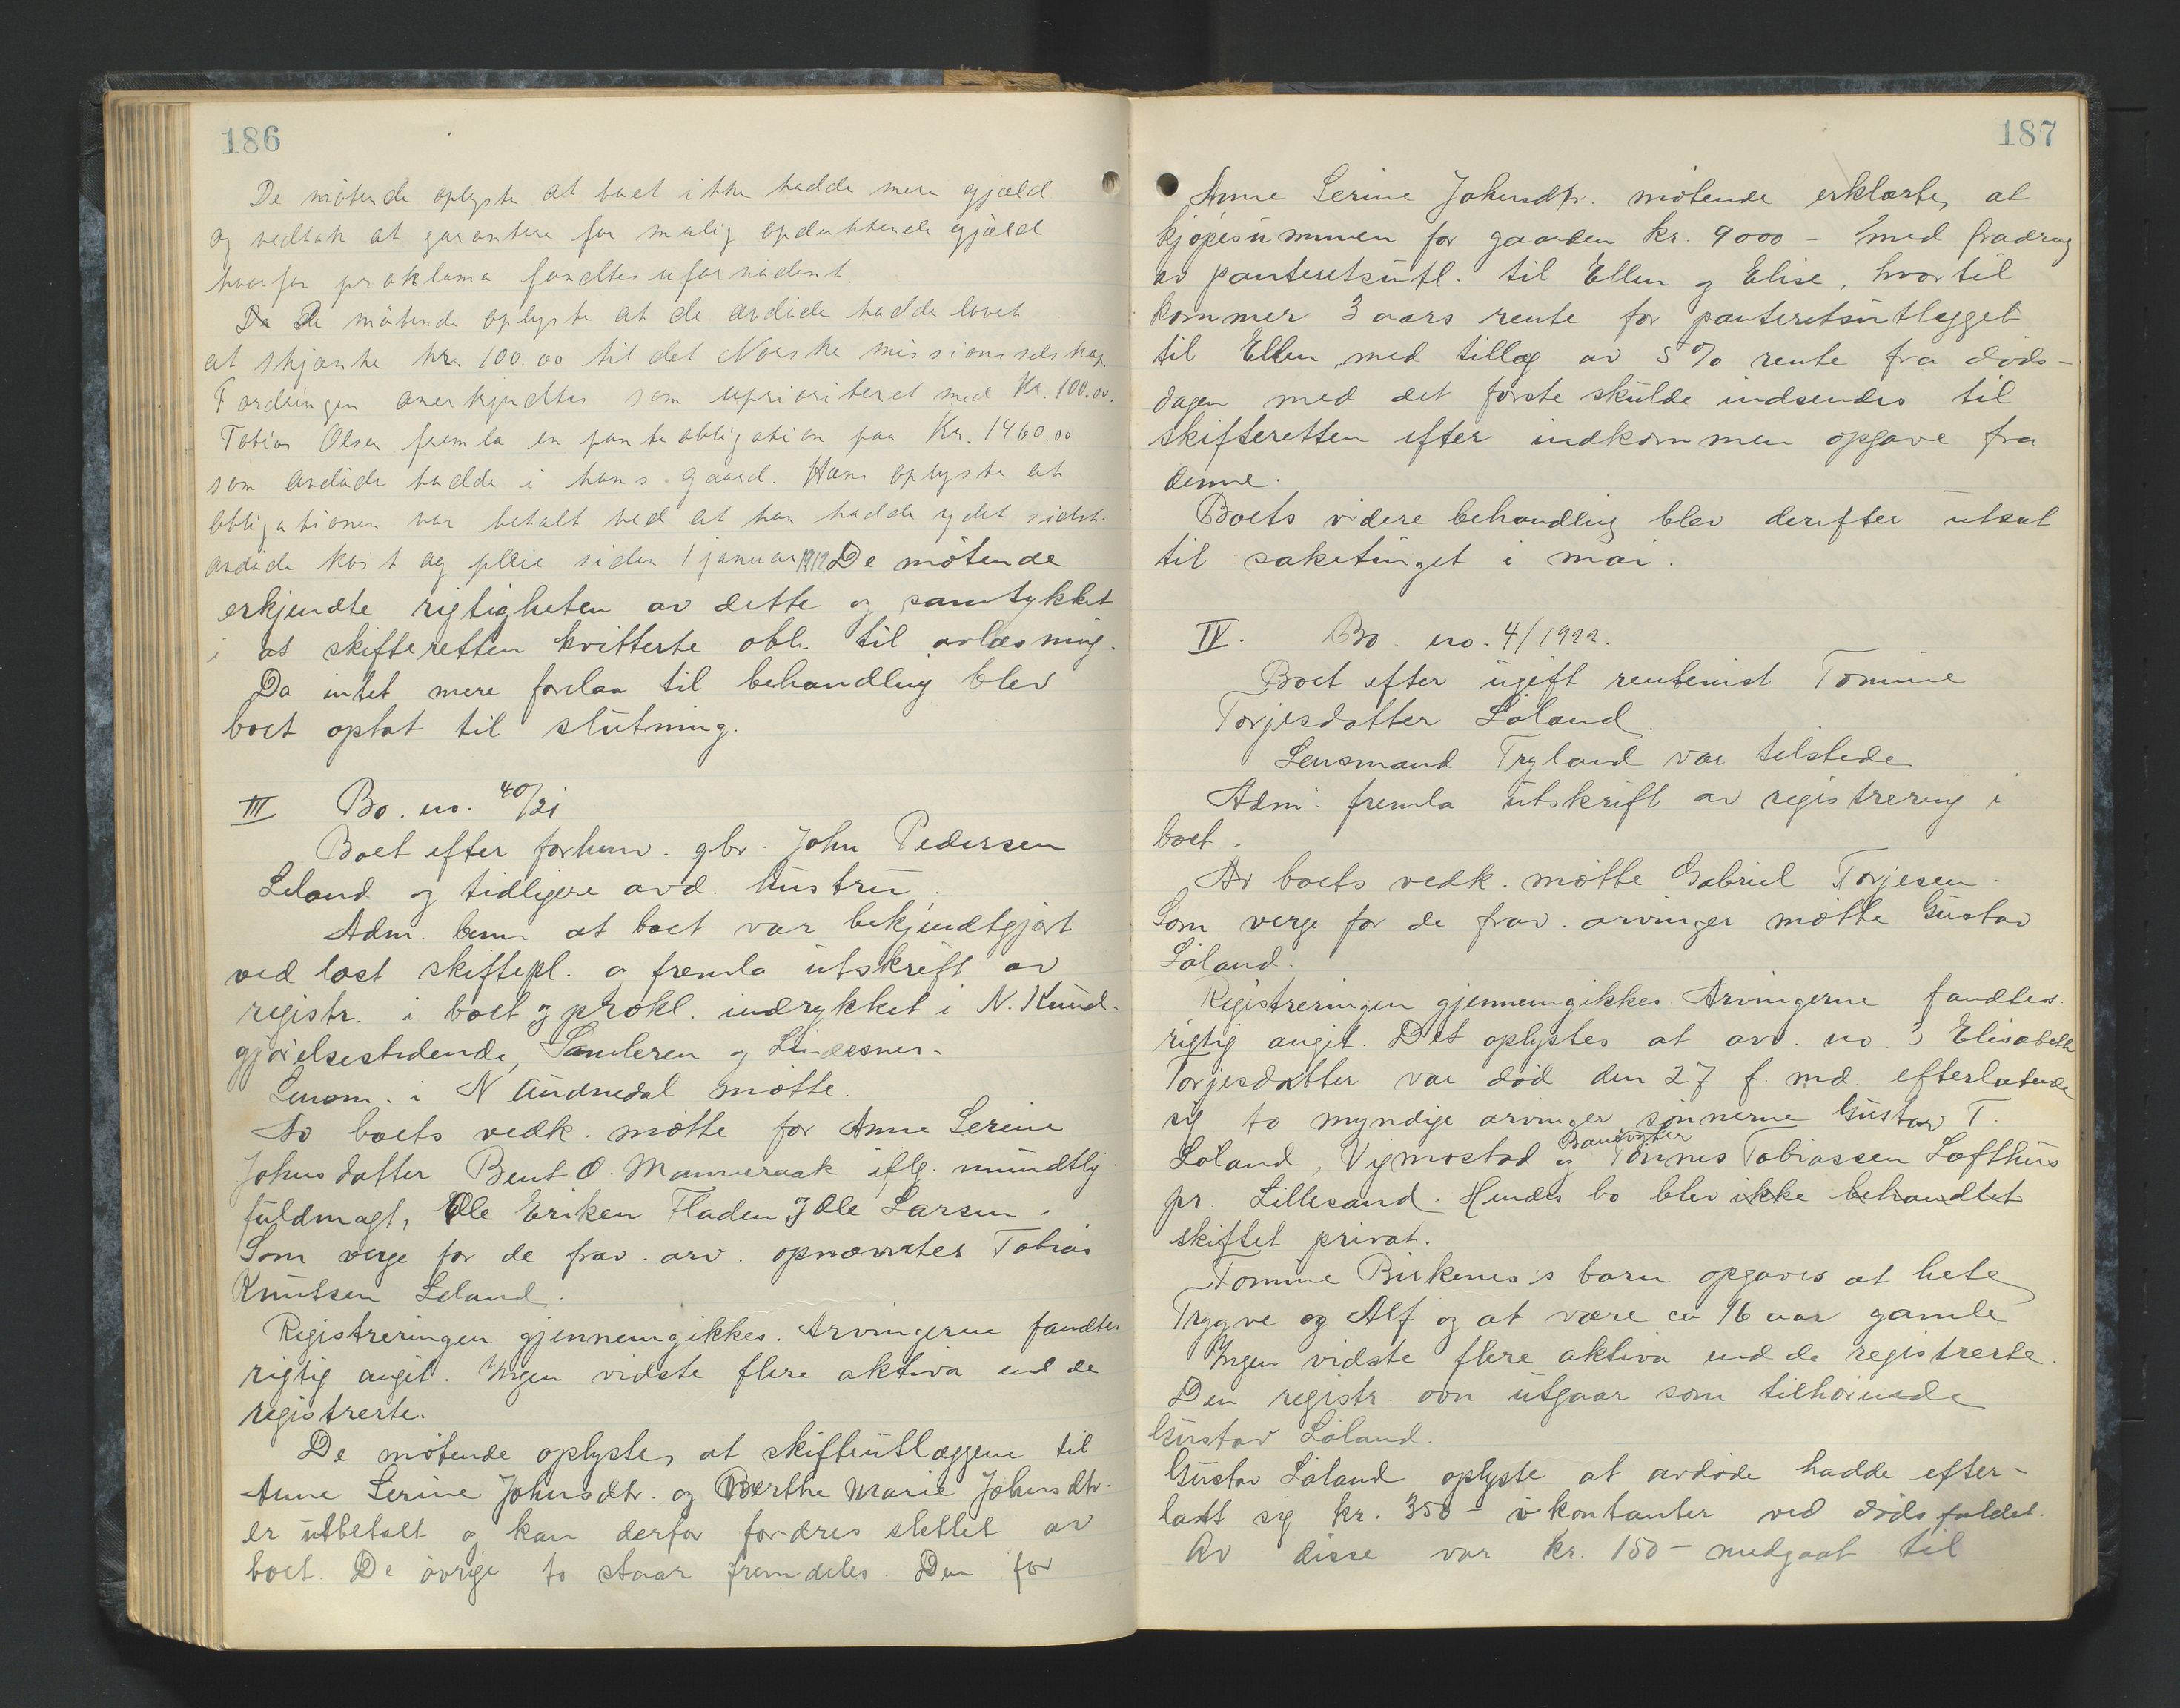 186
De møtende oplyste at boet ikke hadde mere gjæld
og vedtok at garantere for mulig opdukkende gjæld
hvorfor proklama fandtes ufornødent.
De møtende oplyste at de avdøde hadde lovet
at skjænke kr. 100.00 til det Norske missionsselskap.
Fordringen anerkjendtes som uprioriteret med Kr. 100.00.
Tobias Olsen fremla en panteobligation paa Kr. 1460.00
som avdøde hadde i hans gaard. Han oplyste at
obligationen var betalt ved at han hadde ydet sidst-
avdøde kost og pleie siden 1 januar 1912 De møtende
erkjendte rigtigheten av dette og samtykket
i at skifteretten kvitterte obl. til avlæsning.
Da intet mere forelaa til behandling blev
boet optat til slutning.
III Bo. no. 40/21
Boet efter forhenv. gbr. John Pedersen
Leland og tidligere avd. hustru.
Adm. bem at boet var bekjendtgjort
ved læst skiftepl. og fremla utskrift av
registr. i boet og prokl. indrykket i N. Kund-
gjørelsestidende, Samleren og Lindesnes.
Lensm. i N Audnedal møtte.
Av boets vedk. møtte for Anne Serine
Johnsdatter Bent O. Manneraak iflg. mundtlig
fuldmagt, Ole Eriken Fladen og Ole Larsen.
Som verge for de frav. arv. opnævntes Tobias
Knutsen Leland.
Registreringen gjennemgikkes. Arvingerne fandtes
rigtig angit. Ingen vidste flere aktiva end de
registrerte.
De møtende oplyste, at skifteutlæggene til
Anne Serine Johnsdtr. og Berthe Marie Johnsdtr.
er utbetalt og kan derfor fordres slettet av
boet. De øvrige to staar fremdeles. Den for
187
Anne Serine Johnsdtr. møtende erklærte, at
kjøpesummen for gaarden kr. 9000 - med fradrag
av panteretsutl. til Ellen og Elise, hvortil
kommer 3 aars rente for panteretsutlegget
til Ellen, med tillæg av 5 % rente fra døds-
dagen med det første skulde indsendes til
skifteretten efter indkommen opgave fra
denne.
Boets videre behandling blev derefter utsat
til saketinget i mai.
IV. Bo. no. 4/1922.
Boet efter ugift rentenist Tomine
Torjesdatter Løland.
Lensmand Tryland var tilstede
Adm. fremla utskrift av registrering i
boet.
Av boets vedk. møtte Gabriel Torjesen.
Som verge for de frav. arvinger møtte Gustav
Løland.
Registreringen gjennemgikkes. Arvingerne fandtes
rigtig angit. Det oplystes at arv. no. 3 Elisabeth
Torjesdatter var død den 27 f. md. efterlatende
sig to myndige arvinger sønnerne Gustav T.
Løland, Vigmostad og Banevogter Tønnes Tobiassen Lofthus
pr. Lillesand. Hendes bo blev ikke behandlet
skiftet privat.
Tomine Birkenes's barn opgaves at hete
Trygve og Alf og at være ca 16 aar gamle
Ingen vidste flere aktiva end de registrerte.
Den registr. ovn utgaar som tilhørende
Gustav Løland.
Gustav Løland oplyste at avdøde hadde efter-
latt sig kr. 350 - i kontanter ved dødsfaldet.
Av disse var kr. 150 - medgaat til